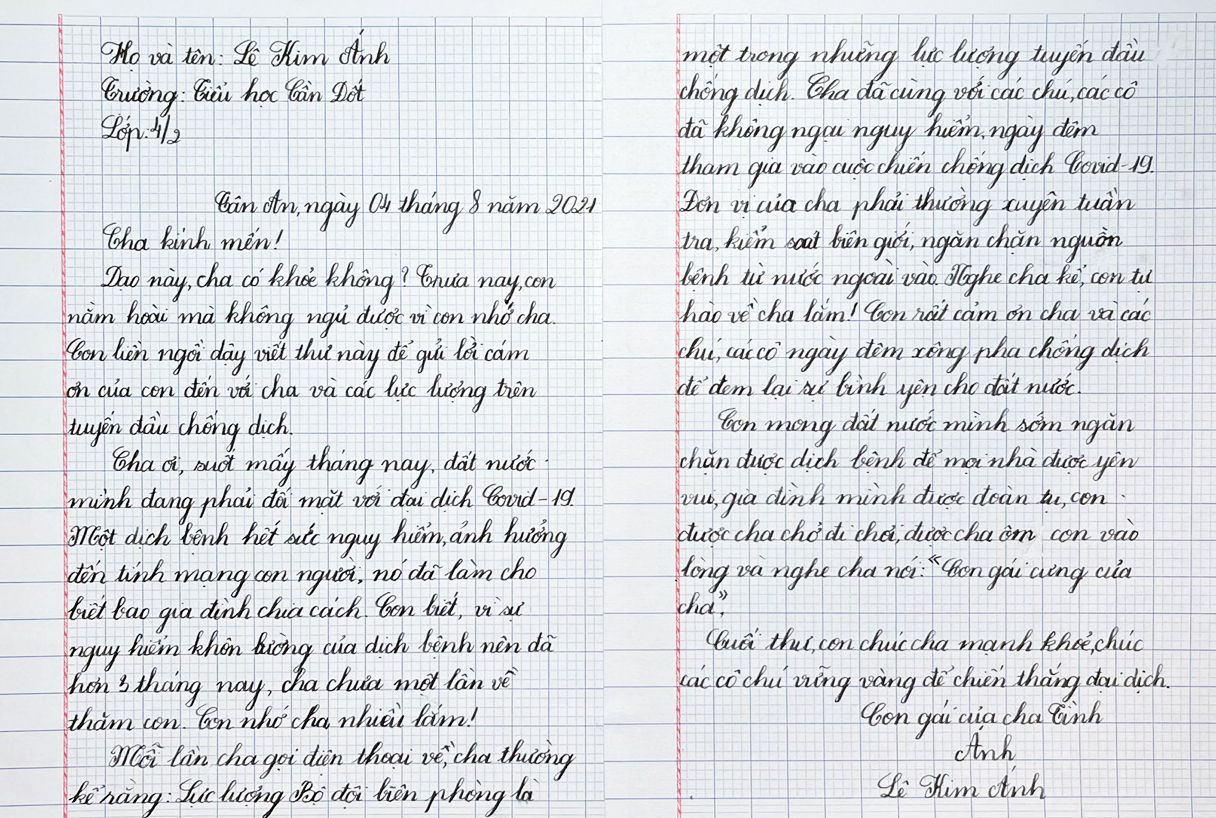 Họ và tên: Lê Kim Ánh
Trường: Tiểu học Cần Đốt
Lớp: 4/2
Tân An, ngày 04 tháng 8 năm 2021
Cha kính mến!
Dạo này, cha có khoẻ không? Trưa nay, con
nằm hoài mà không ngủ được vì con nhớ cha.
Con liền ngồi dậy viết thư này để gửi lời cám
ơn của con đến với cha và các lực lượng trên
tuyến đầu chống dịch.
Cha ơi, suốt mấy tháng nay, đất nước
mình đang phải đối mặt với đại dịch Covid-19.
Một dịch bệnh hết sức nguy hiểm, ảnh hưởng
đến tính mạng con người, nó đã làm cho
biết bao gia đình chia cách. Con biết, vì sự
nguy hiểm khôn lường của dịch bệnh nên đã
hơn 3 tháng nay, cha chưa một lần về
thăm con. Con nhớ cha nhiều lắm!
Mỗi lần cha gọi điện thoại về, cha thường
kể rằng: Lực lượng Bộ đội biên phòng là
một trong những lực lượng tuyến đầu
chống dịch. Cha đã cùng với các chú, các cô
đã không ngại nguy hiểm, ngày đêm
tham gia vào cuộc chiến chống dịch Covid-19.
Đơn vị của cha phải thường xuyên tuần
tra, kiểm soát biên giới, ngăn chặn nguồn
bệnh từ nước ngoài vào. Nghe cha kể, con tự
hào về cha lắm! Con rất cảm ơn cha và các
chú, các cô ngày đêm xông pha chống dịch
để đem lại sự bình yên cho đất nước.
Con mong đất nước mình sớm ngăn
chặn được dịch bệnh để mọi nhà được yên
vui, gia đình mình được đoàn tụ, con
được cha chở đi chơi, được cha ôm con vào
lòng và nghe cha nói: "Con gái cưng của
cha".
Cuối thư, con chúc cha mạnh khoẻ, chúc
các cô chú vững vàng để chiến thắng đại dịch.
Con gái của cha Tình
Ánh
Lê Kim Ánh